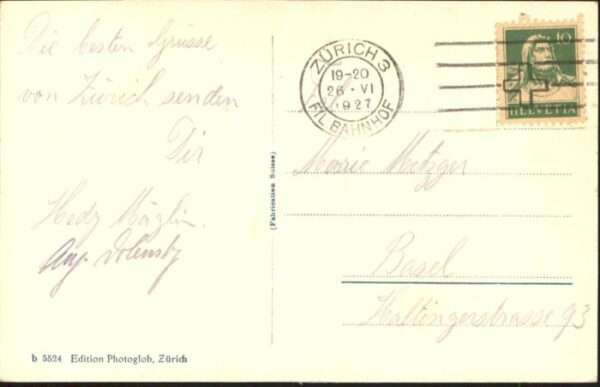 Die besten Grüsse
von Zürich senden
Dir
Hedy
Aug.
b 5524 Edition Photoglob, Zürich
(Fabrication Suisse)
ZÜRICH 3
19-20
26·VI
1927
FIL. BAHNHOF
10
HELVETIA
Marie Metzger
Basel
Haltingerstrasse 93